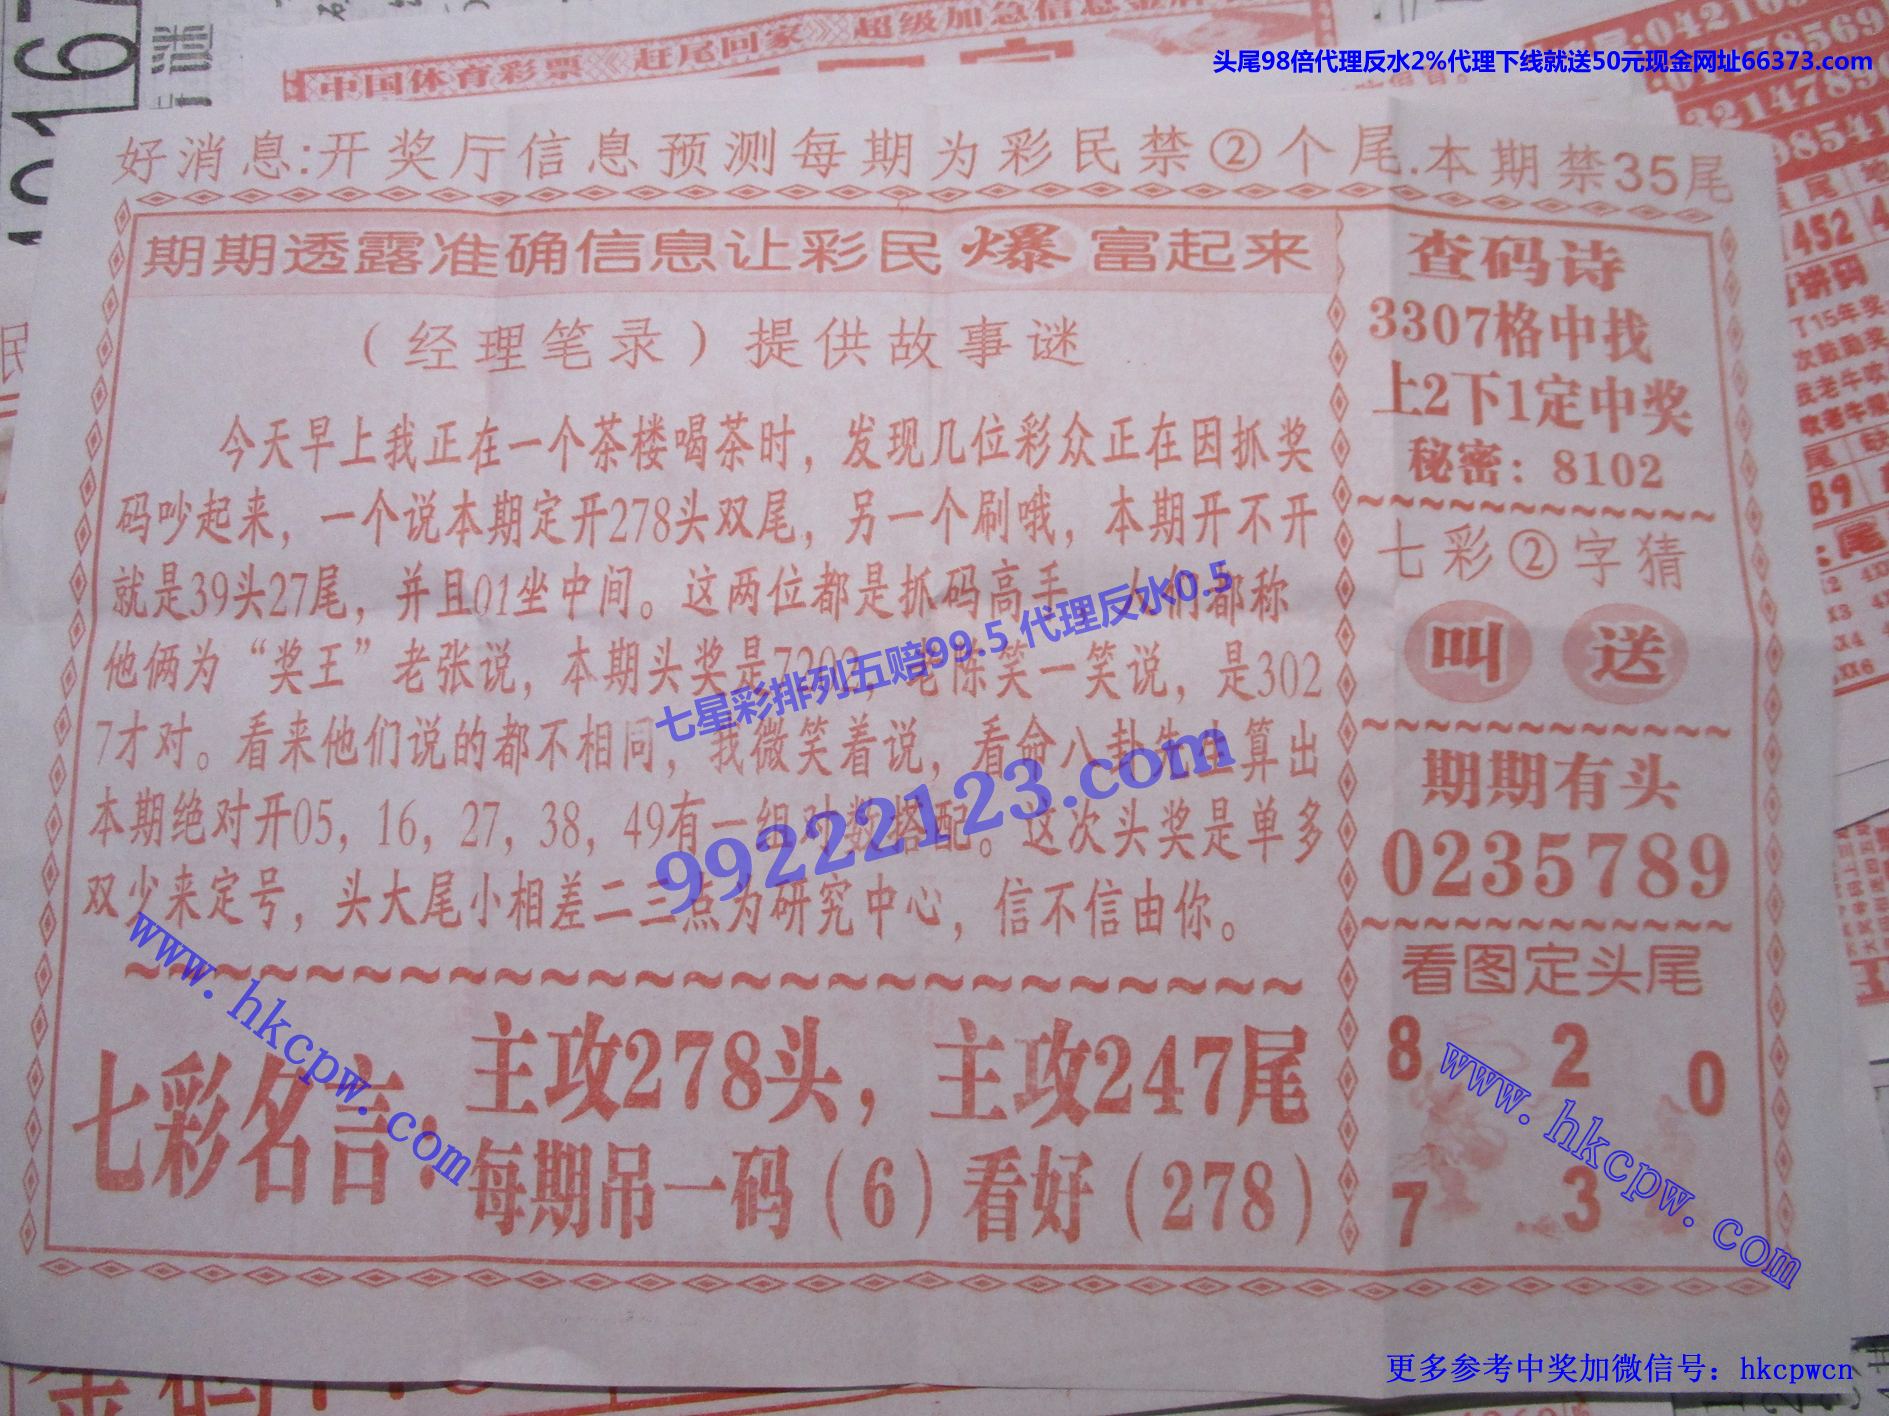 头尾98倍代理反水2%代理下线就送50元现金网址66373.com
中国体育彩票《赶尾回家》超级加急信息
好消息:开奖厅信息预测每期为彩民禁②个尾.本期禁35尾
期期透露准确信息让彩民爆富起来
(经理笔录)提供故事谜
今天早上我正在一个茶楼喝茶时，发现几位彩众正在因抓奖
码吵起来，一个说本期定开278头双尾，另一个刷哦，本期开不开
就是39头27尾，并且01坐中间。这两位都是抓码高手，人们都称
他俩为“奖王”老张说，本期头奖是7202，老陈笑一笑说，是302
7才对。看来他们说的都不相同，我微笑着说，看命八卦先生算出
本期绝对开05，16，27，38，49有一组对数搭配。这次头奖是单多
双少来定号，头大尾小相差二三点为研究中心，信不信由你。
七彩名言:
主攻278头，主攻247尾
每期吊一码(6)看好(278)
查码诗
3307格中找
上2下1定中奖
秘密：8102
七彩②字猜
叫 送
期期有头
0235789
看图定头尾
8 2 0
7 3
七星彩排列五赔99.5 代理反水0.5
99222123.com
www.hkcpw.com
www.hkcpw.com
更多参考中奖加微信号：hkcpwcn